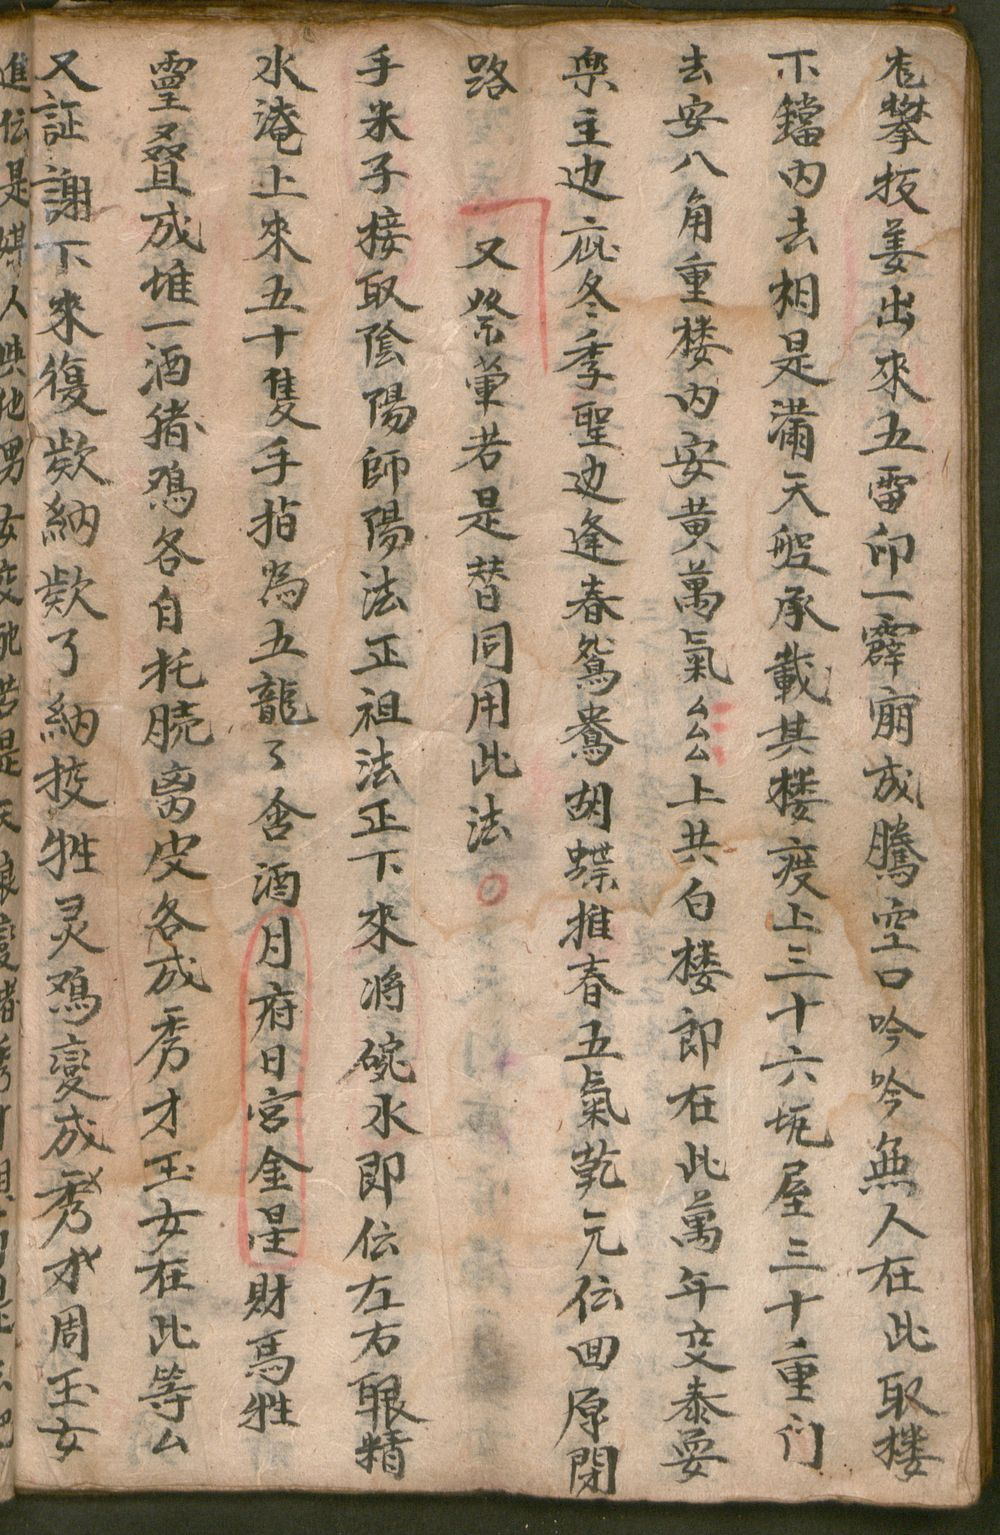 攀扳姜出來五雷印一霹雳成騰空口吟吟無人在此取楼
不鐺内去相是满天型承載其楼度上三十六坭屋三十重门
去安八角重楼内安黄萬氣厶厶厶上共白楼郎在此萬年交泰耍
楽主边庇冬季聖边逢春鴛鴦胡蝶推春五氣乾元伝回原閉
路　又祭葷若是替同用此法
手米子接取陰陽師陽法正祖法正下來将碗水即伝左右眼精
水淹上來五十隻手指為五龍了含酒月府日宫金星財馬牲
靈聟成堆一酒猪鴉各自托脱离皮各成秀才玉女在此等厶
又証謝下來復歎納歎了納投牲灵鴉變成秀才周玉女